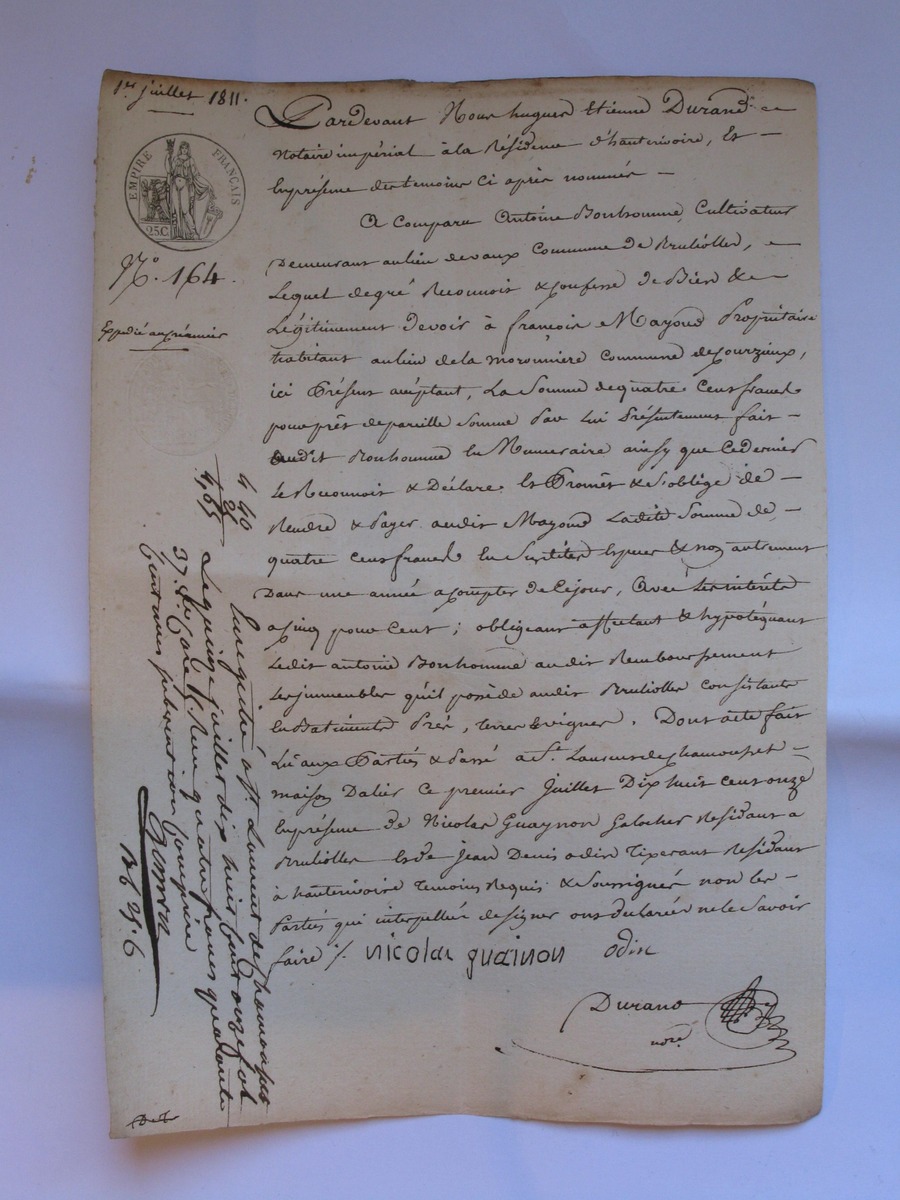 1er juillet 1811.
EMPIRE FRANÇAIS
25C
N.º 164.
Expédié au créancier
Pardevant Nous hugues Etienne Durand
notaire impérial à la Résidence d'hauterivoire, Et
En présence des temoins Ci après nommés
A Comparu Antoine Bonhomme, Cultivateur
Demeurant au lieu devaux Commune de Brulioles,
Lequel de gré Reconnoit & Confesse de Bien &
Légitimement Devoir à françois Mayoud Propriétaire
habitant au lieu de la moronniere Commune de Courzieux,
ici Présent acceptant, La Somme de quatre Cens francs
pour prêt de pareille Somme Par Lui Présentement fait
audit Bonhomme En Numeraire ainsy que Ce dernier
Le Reconnoit & Déclare Et Promet & s'oblige de
Rendre & Payer audit Mayoud Ladite Somme de
quatre Cens francs En Susdites Especes & non autrement
Dans une année a Compter de Ce jour, Avec Les intérêts
a Cinq pour Cent ; obligeant affectant & hypotéquant
Ledit antoine Bonhomme audit Remboursement
Les immeubles qu'il possede audit Brulioles Consistants
En Batiments Prés, terres & vignes. Dont acte fait
Lu aux Parties & Passé a St. Laurent de Chamousset
maison Dalier Ce premier Juillet Dix huit Cent onze
En présence de Nicolas Guaynon Galocher Résidant a
Brulioles Et de Jean Denis odin Tixerant Résidant
à hauterivoire Temoins Requis & Soussignés non les
Parties qui interpellées de signer ont déclarées ne le Savoir
faire /.
nicolas guainon
odin
Durand
nore
4 40
4,65
Enregistré à St. Laurent de Chamousset
Le quinze juillet dix huit Cent onze fol
37. Reçu quatre francs quarante
Centimes subvention Comprise